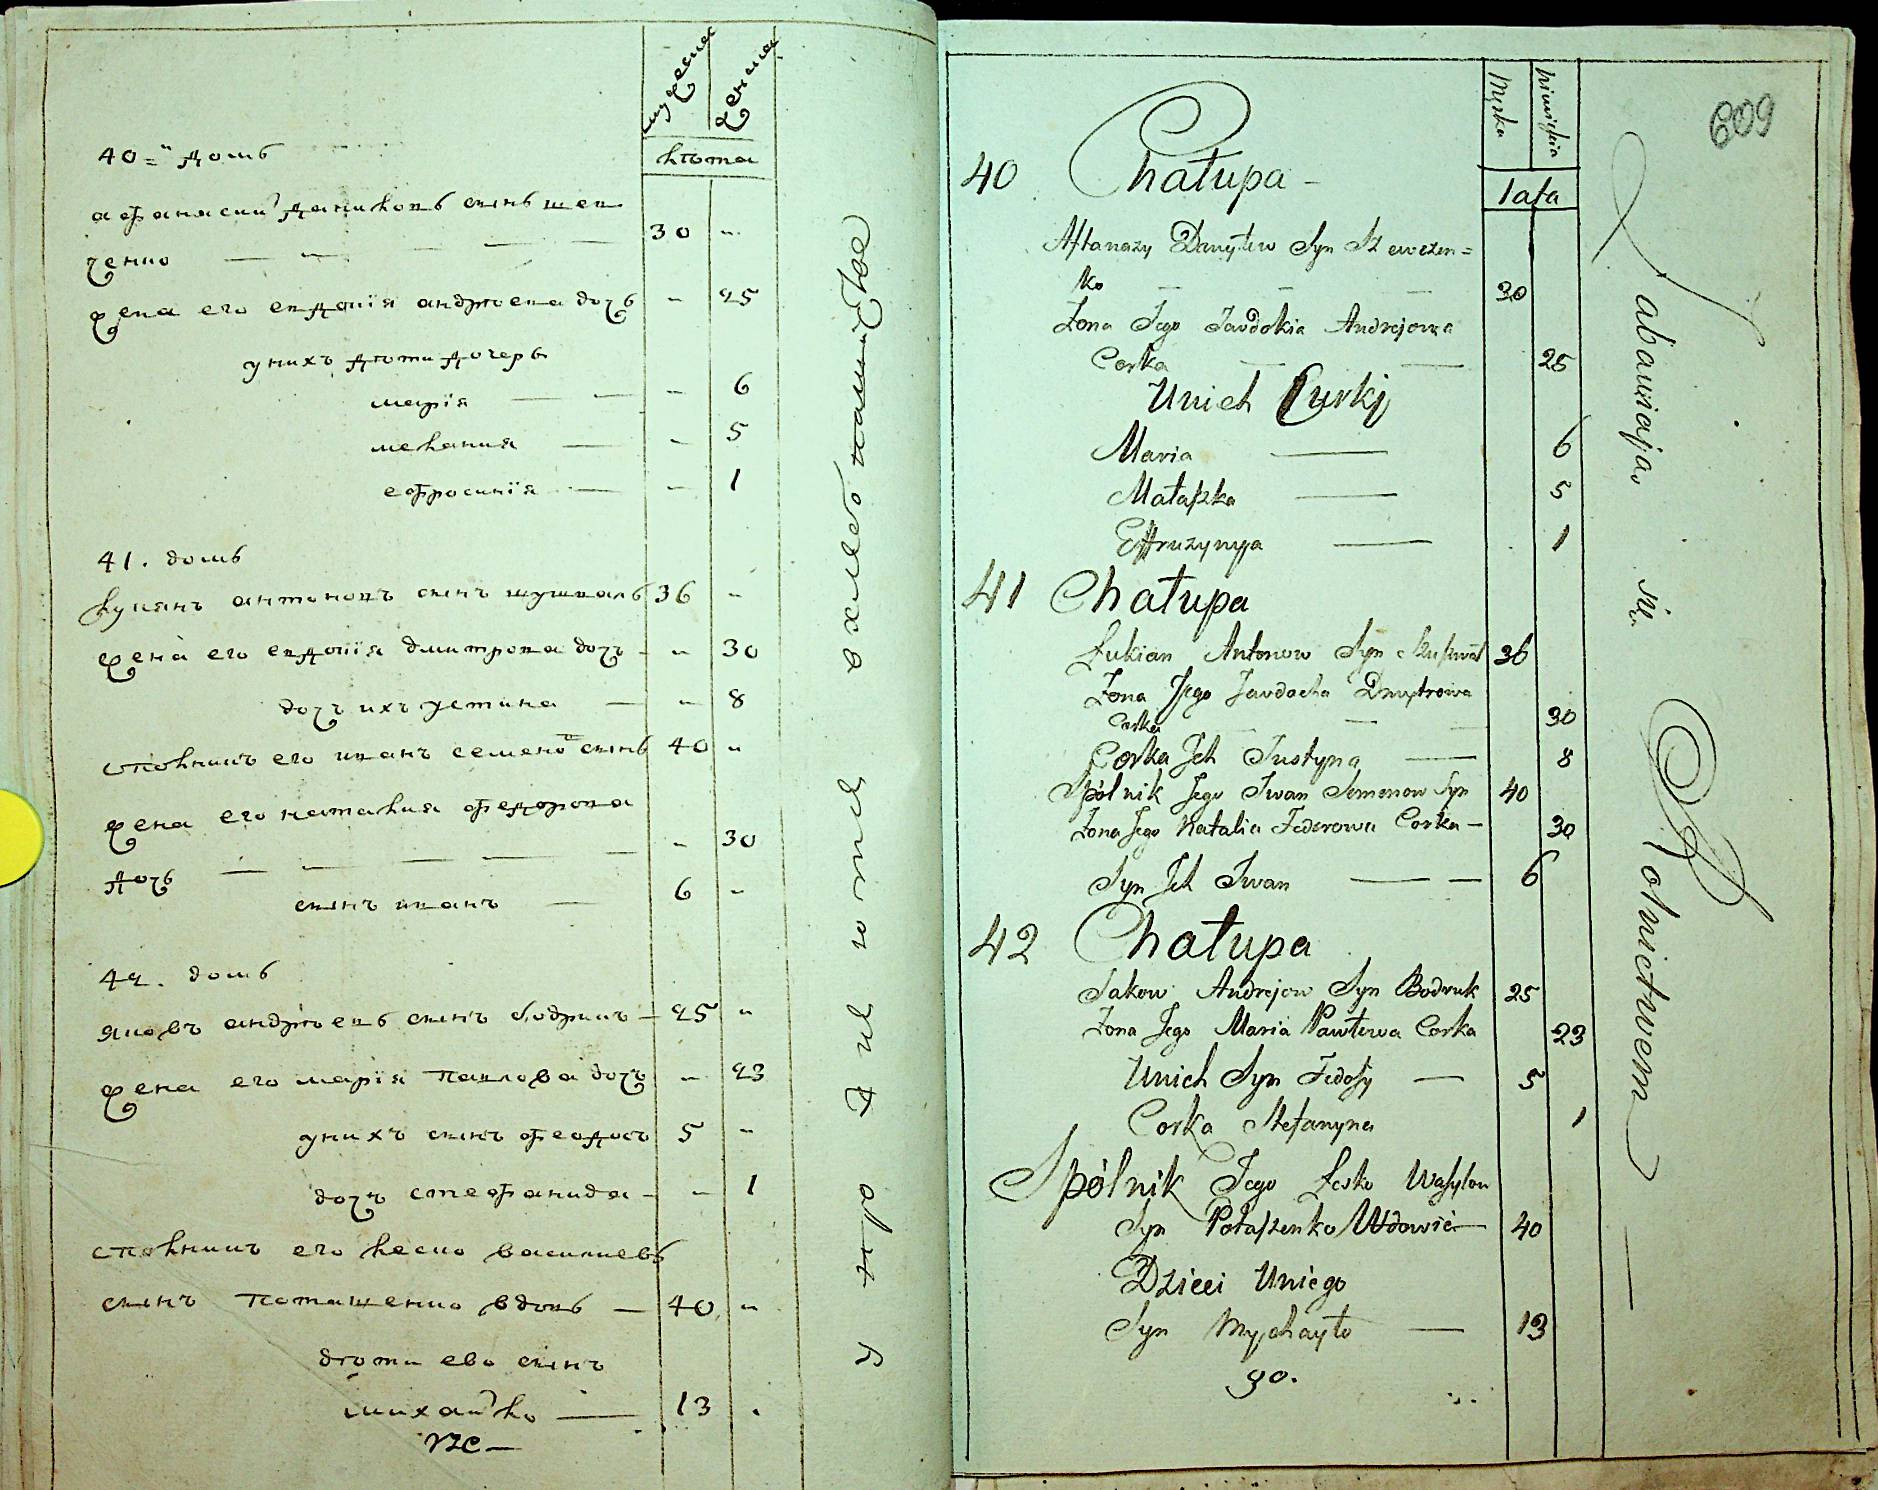 мужеска
женска
лѣта
40=й домъ
афанасий даниловъ синъ шев
ченко — — — — — 30 "
жена его евдокія андрѣева дочъ " 25
у нихъ дѣти дочеръ
марія — — - 6
мелания — - 5
ефросинія — - 1
41. домъ
лукянъ антоновъ синъ шушвалъ 36 "
жена его евдокія дмитрова дочъ - " 30
дочъ ихъ устина — " 8
сполникъ его иванъ семеновъ синъ 40 "
жена его наталия федорова
дочъ — — — — — " 30
синъ иванъ — 6 "
42. домъ
яковъ андрѣевъ синъ бодрикъ — 25 "
жена его марія павлова дочъ " 23
у нихъ синъ феодосъ 5 "
дочъ стефанида - " 1
сполникъ его леско василиевъ
синъ поташенко вдовъ — 40 "
дѣти его синъ
михайло — 13 "
у пражняются в хлебо пашестве
609
Męska
Niewieścia
Lata
40 Chałupa -
Aftanazy Danyłew Syn Szewczen=
ko — — — 30
Żona Jego Jawdokia Andrejowa
Corka — — 25
Unich Curkj
Maria — 6
Małaszka — 5
Effruzynyja — 1
41 Chałupa
Łukian Antonow Syn Szuszwał 36
Żona Jego Jawdocha Dmytrowa
Corka — — 30
Corka Jch Justyna — 8
Spólnik Jego Iwan Semenow Syn 40
Żona Jego Natalia Fedorowa Corka — 30
Syn Jch Iwan — — 6
42 Chałupa
Jakow Andrejow Syn Bodruk 25
Żona Jego Maria Pawłowa Corka 23
Unich Syn Fedosy — 5
Corka Stefanyna 1
Spólnik Jego Lesko Wasylow
Syn Potaszenko Wdowiec 40
Dzieci Uniego
Syn Mychayło — 13
90.
Zabawiaja się Rolnictwem —